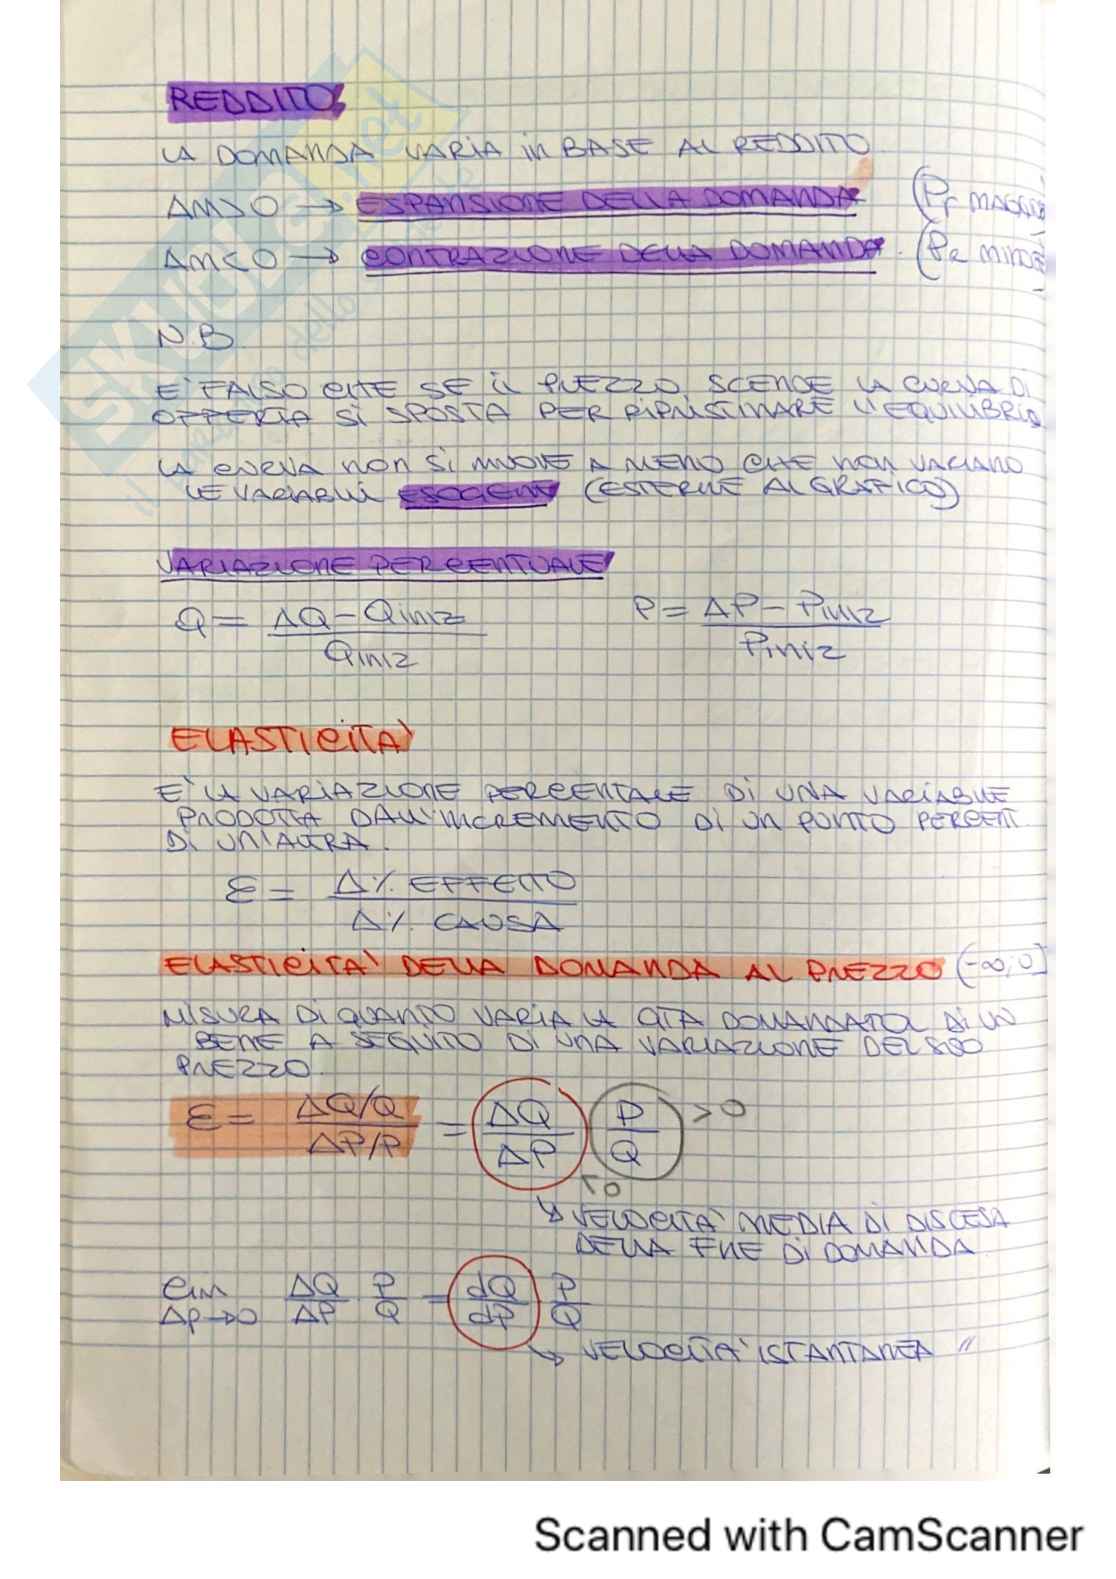 REDDITO
LA DOMANDA VARIA in BASE AL REDDITO
ΔM>0 → ESPANSIONE DELLA DOMANDA (Pr MAGGIO
ΔM<0 → CONTRAZIONE DELLA DOMANDA. (Pr MINOR
N.B
E' FALSO CHE SE IL PREZZO SCENDE LA CURVA DI
OFFERTA SI SPOSTA PER RIPRISTINARE L'EQUILIBRIO
LA CURVA non SI MUOVE A MENO CHE non VARIANO
LE VARIABILI ESOGENE (ESTERNE AL GRAFICO)
VARIAZIONE PERCENTUALE
Q = ΔQ - Qiniz / Qiniz P = ΔP - Piniz / Piniz
ELASTICITA'
E' LA VARIAZIONE PERCENTALE DI UNA VARIABILE
PRODOTTA DALL'INCREMENTO DI UN PUNTO PERCENT.
DI UN'ALTRA.
ε = Δ% EFFETTO / Δ% CAUSA
ELASTICITA' DELLA DOMANDA AL PREZZO (-∞;0]
MISURA DI QUANTO VARIA LA QTA DOMANDATA DI UN
BENE A SEGUITO DI UNA VARIAZIONE DEL SUO
PREZZO.
ε = ΔQ/Q / ΔP/P = ΔQ/ΔP P/Q >0
<0
↳ VELOCITA' MEDIA DI DISCESA
DELLA FNE DI DOMANDA
lim Δp→0 ΔQ/ΔP P/Q = dQ/dP P/Q
↳ VELOCITA' ISTANTANEA "
Scanned with CamScanner